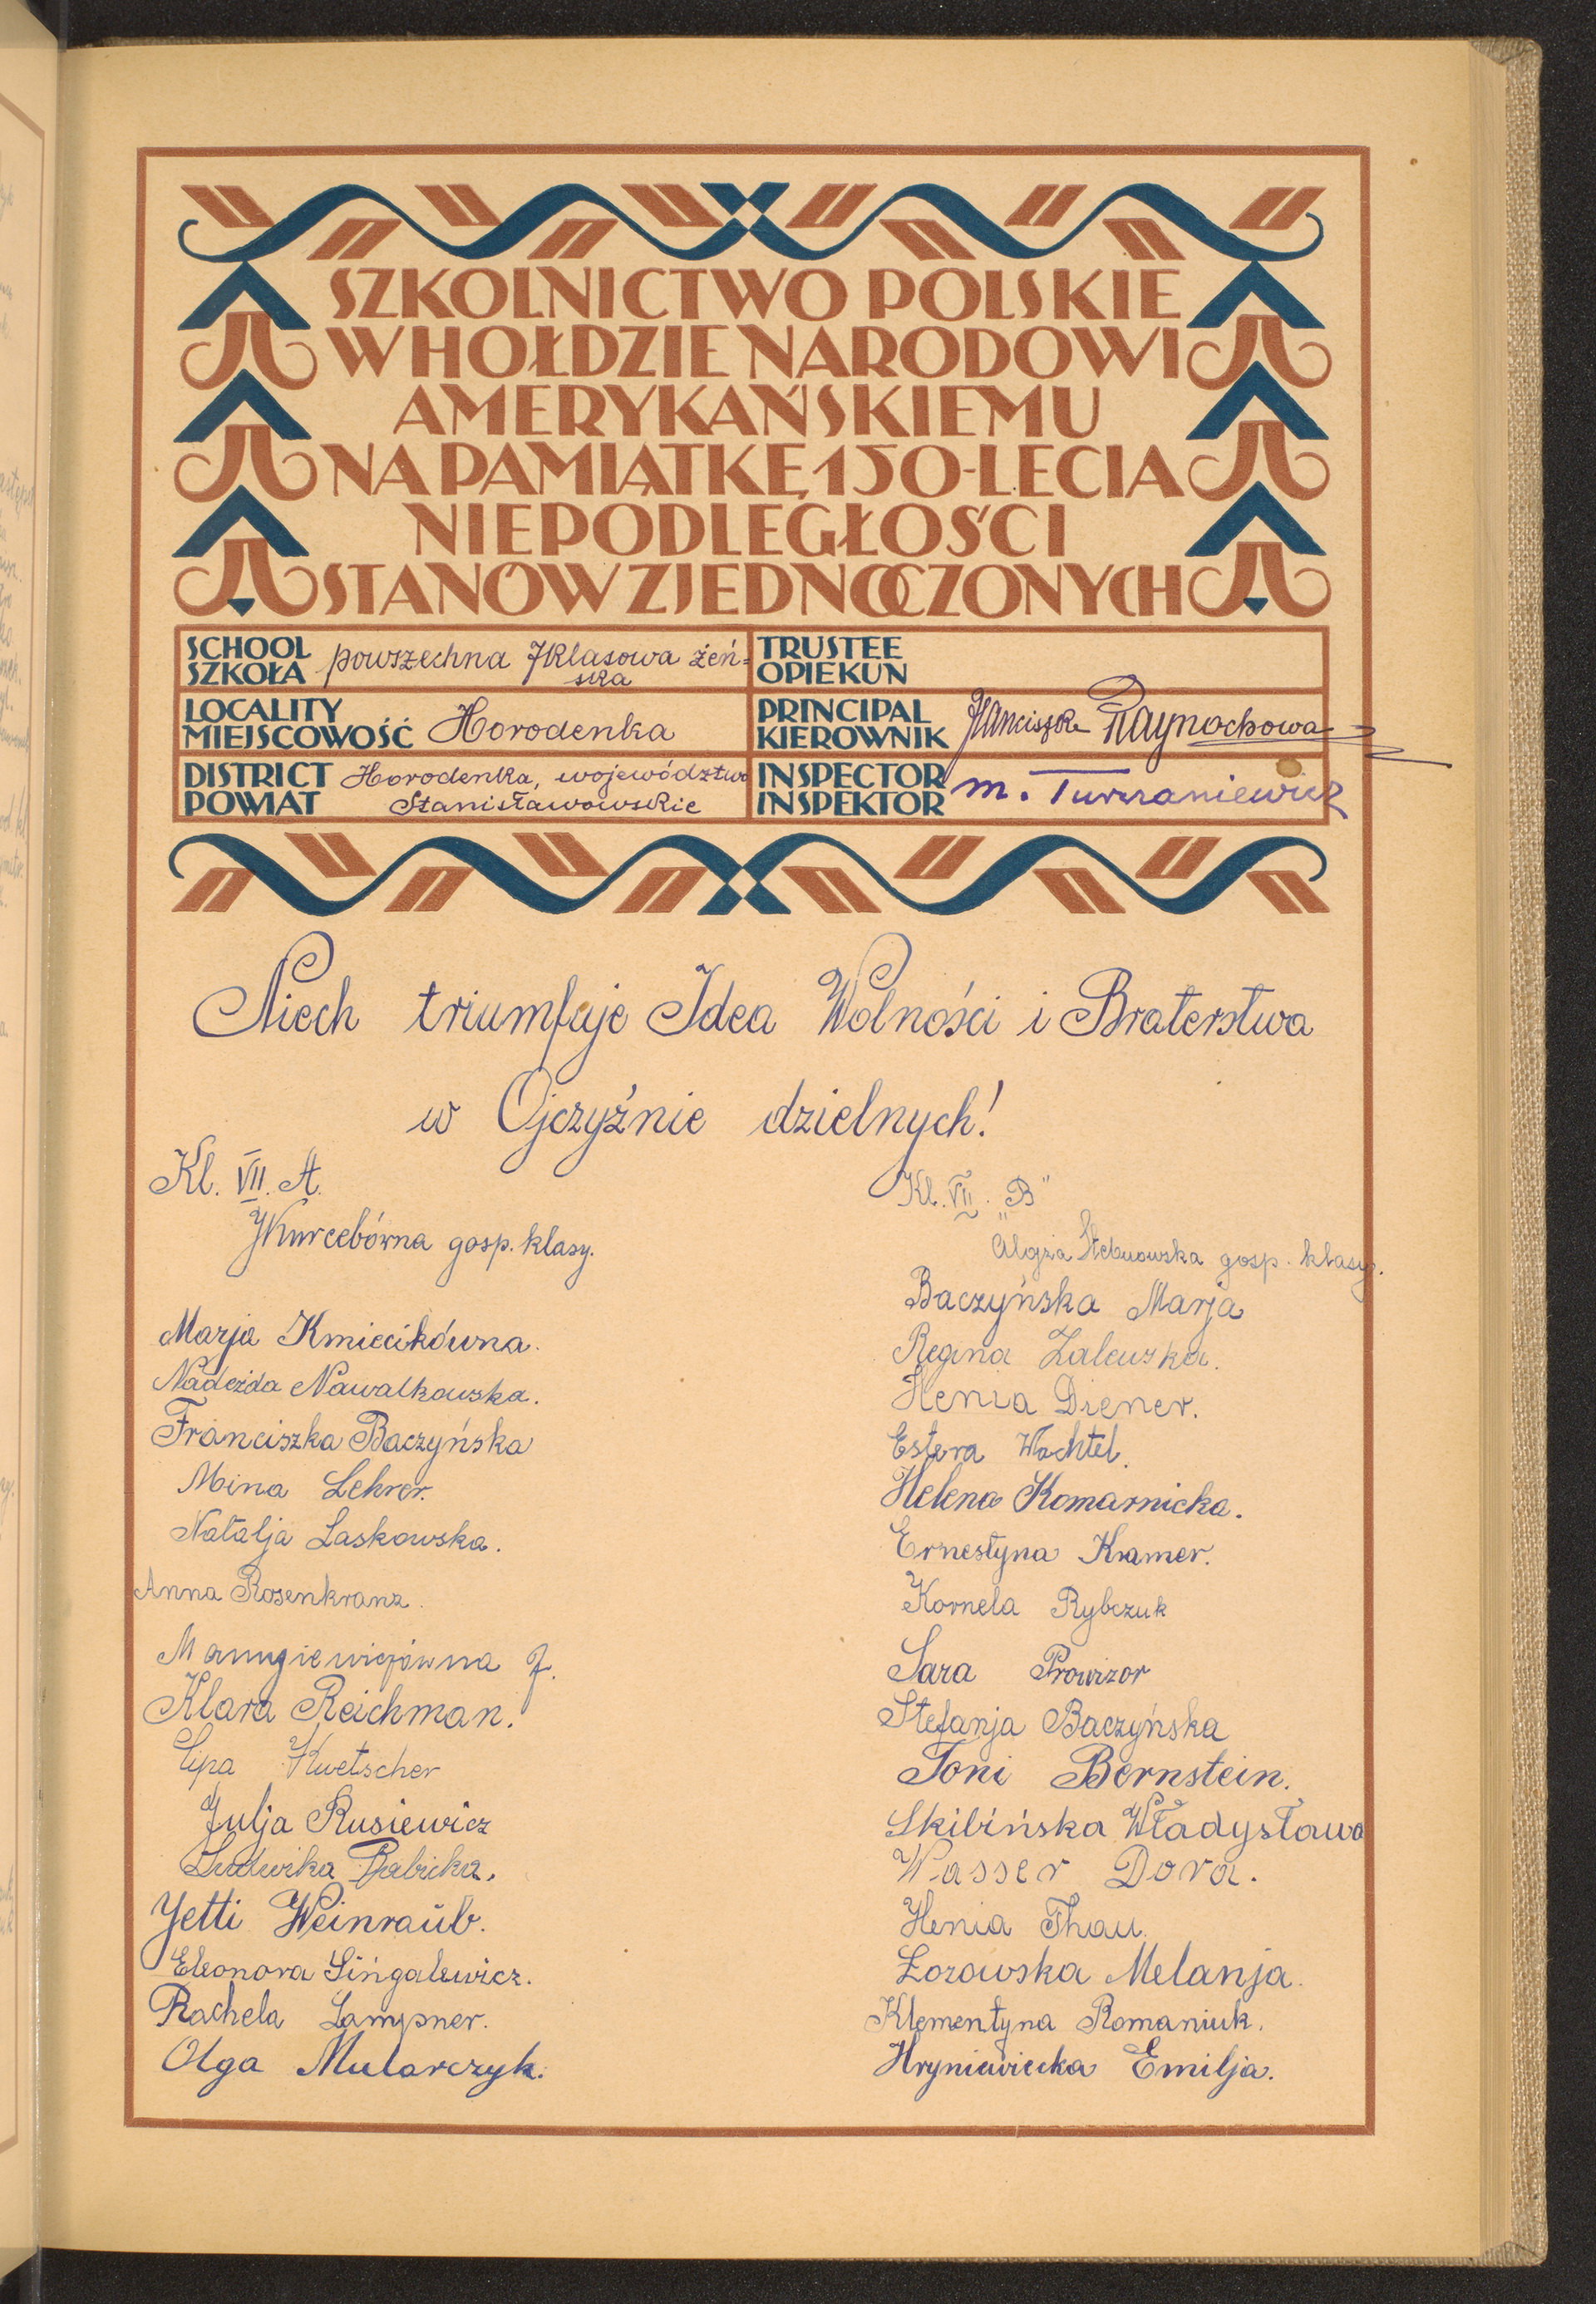 SZKOLNICTWO POLSKIE
W HOŁDZIE NARODOWI
AMERYKAŃSKIEMU
NA PAMIĄTKĘ 150-LECIA
NIEPODLEGŁOŚCI
STANÓW ZJEDNOCZONYCH
SCHOOL
SZKOŁA powszechna 7klasowa żeń=
ska
TRUSTEE
OPIEKUN
LOCALITY
MIEJSCOWOŚĆ Horodenka
PRINCIPAL
KIEROWNIK Franciszka Raynochowa
DISTRICT Horodenka, województwo
POWIAT Stanisławowskie
INSPECTOR
INSPEKTOR M. Turzaniewicz
Niech triumfuje Idea Wolności i Braterstwa
w Ojczyźnie dzielnych!
Kl. VII. A.
JKurcebówna gosp. klasy.
Marja Kmiecikówna.
Nadeżda Nawalkowska.
Franciszka Baczyńska
Mina Lehrer.
Natalja Laskowska.
Anna Rosenkranz.
Manugiewiczówna J.
Klara Reichman.
Lipa Kwetscher
Julja Rusiewicz
Ludwika Babicka.
Jetti Weinraub.
Eleonora Singalewicz.
Rachela Lampner.
Olga Mularczyk.
Kl. VII. „B"
gosp. klasy.
Baczyńska Marja
Regina Zalewska.
Henia Diener.
Estera Wachtel.
Helena Komarnicka.
Ernestyna Kramer.
Kornela Rybczuk
Sara Prowizor
Stefanja Baczyńska
Toni Bernstein.
Skibińska Władysława
Wasser Dora.
Henia Thau.
Łozowska Melanja.
Klementyna Romaniuk.
Hryniewiecka Emilja.